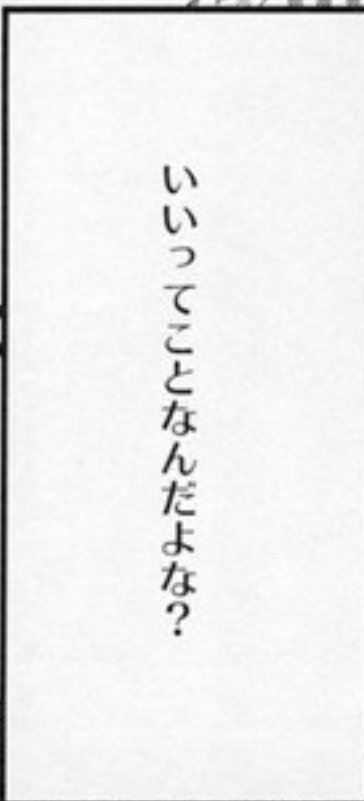 いいってことなんだよな？